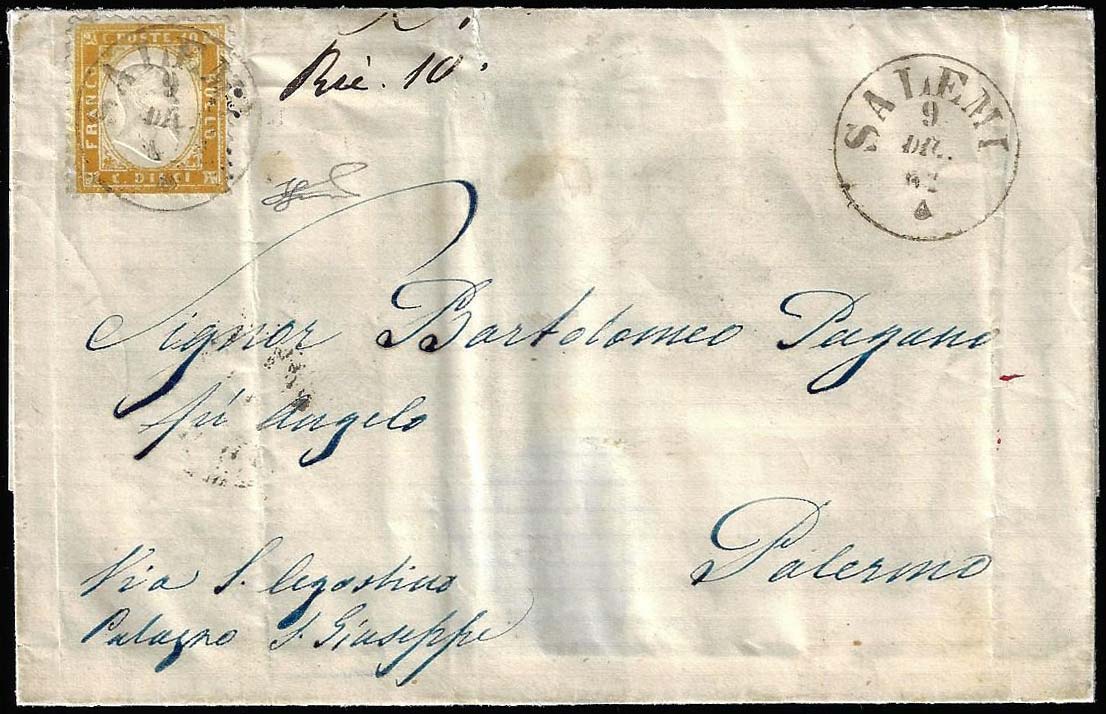 C. POSTE 10
FRANCO
BOLLO
C. DIECI
SALEMI
9
Ric. 10.
SALEMI
9
DIC.
62
A
Signor Bartolomeo Pagano
fù Angelo
Palermo
Via S. Agostino
Palazzo S. Giuseppe